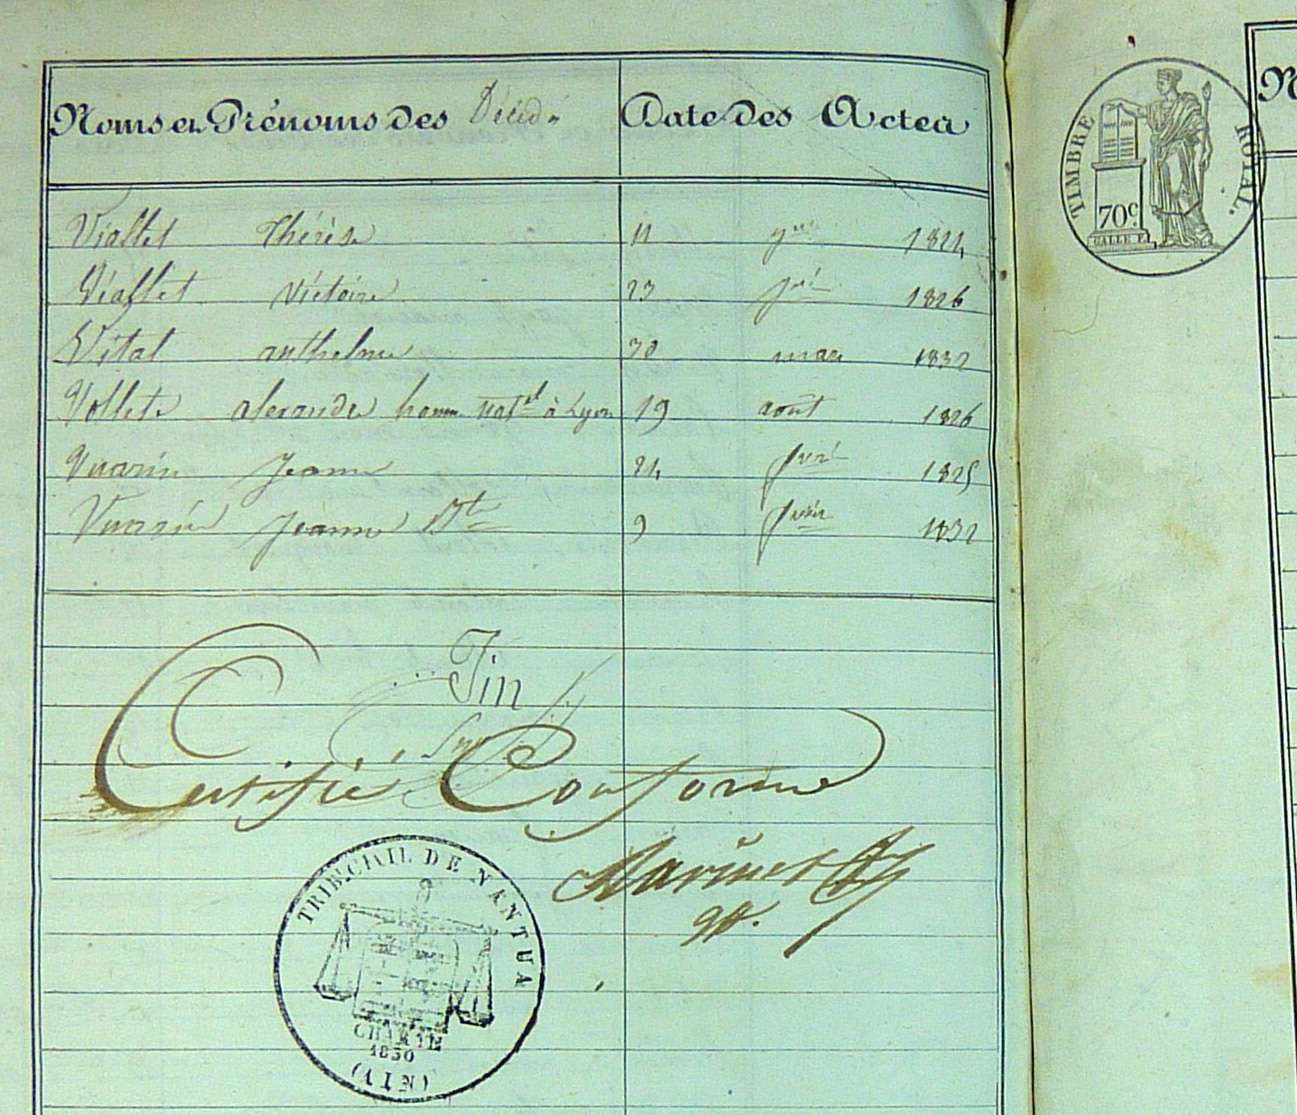 Noms et Prénoms des Décédés
Date des Actes
Viallet Thérèse 11 1824
Viallet Victoire 23 1826
Vital anthelme 30 mars 1832
Vollet alexandre à Lyon 19 août 1826
Vuarin Jeanne 24 1825
Vuarin Jeanne Bte 9 1832
Fin
Certifié Conforme
TRIB. CIVIL DE NANTUA
CHARTE
1830
(AIN)
TIMBRE ROYAL.
70c.
N